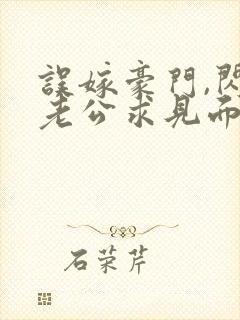 誤嫁豪門,閃
老公求見面
石荣芹